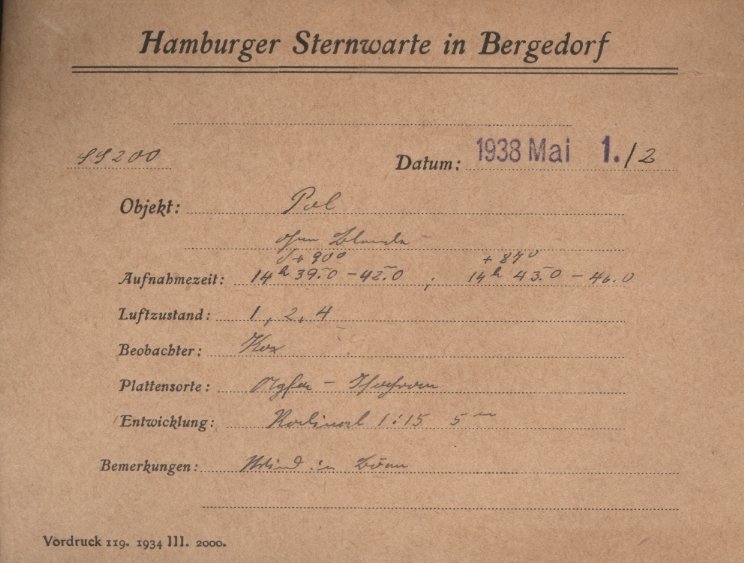 Hamburger Sternwarte in Bergedorf
SS200 Datum: 1938 Mai 1./2
Objekt: Pol
ohne Blende
δ+90° +87°
Aufnahmezeit: 14h 39.0 - 42.0 ; 14h 43.0 - 46.0
Luftzustand: 1, 2, 4
Beobachter: Kox
Plattensorte: Agfa - Isochrom
Entwicklung: Rodinal 1:15 5m
Bemerkungen: Wind in Böen
Vordruck 119. 1934 III. 2000.